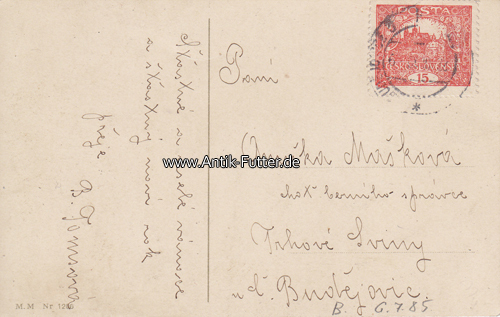 Šťastné a veselé vánoce
a šťastný nový rok
přeje
B.
Paní
Anežka Mašková
choť berního správce
Trhové Sviny
u Č. Budějovic
POSTA
ČESKOSLOVENSKÁ
15
www.Antik-Futter.de
M. M Nr. 1236
B. 6.7.85